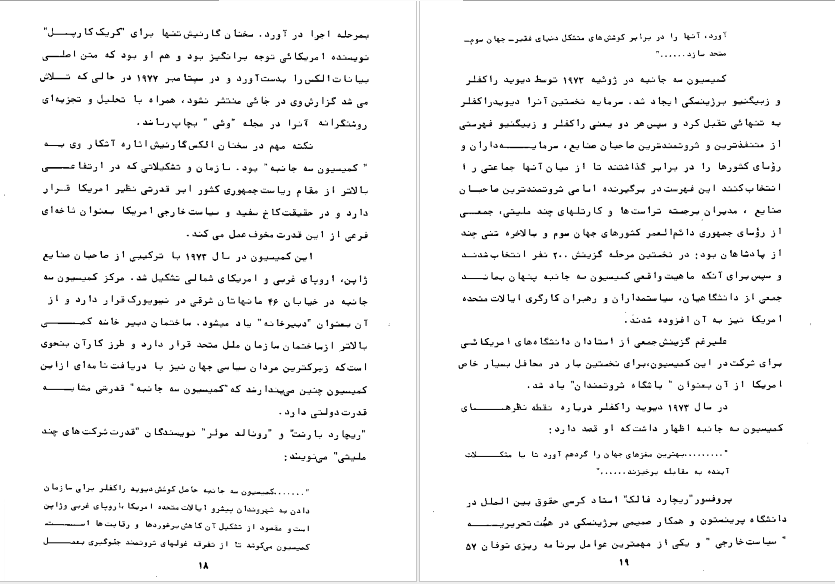 بمرحله اجرا در آورد. سخنان گارنیش تنها برای "کریک کارپل"
نویسنده امریکائی توجه برانگیز بود و هم او بود که متن اصلی
بیانات الکس را بدست آورد و در سپتامبر ۱۹۷۷ در حالی که تلاش
می شد گزارش وی در جائی منتشر نشود، همراه با تحلیل و تجزیه‌ای
روشنگرانه آنرا در مجله "وثی" بچاپ رساند.
نکته مهم در سخنان الکس گارنیش اشاره آشکار وی به
"کمیسیون سه جانبه" بود. سازمان و تشکیلاتی که در ارتفاعی
بالاتر از مقام ریاست جمهوری کشور ابر قدرتی نظیر امریکا قرار
دارد و در حقیقت کاخ سفید و سیاست خارجی امریکا بعنوان شاخه‌ای
فرعی از این قدرت مخوف عمل می کند.
این کمیسیون در سال ۱۹۷۳ با ترکیبی از صاحبان صنایع
ژاپن، اروپای غربی و امریکای شمالی تشکیل شد. مرکز کمیسیون سه
جانبه در خیابان ۴۶ مانهاتان شرقی در نیویورک قرار دارد و از
آن بعنوان "دبیرخانه" یاد میشود. ساختمان دبیر خانه کمی
بالاتر ازساختمان سازمان ملل متحد قرار دارد و طرز کارآن بنحوی
است‌که زیرکترین مردان سیاسی جهان نیز با دریافت نامه‌ای ازاین
کمیسیون چنین می‌پندارند که "کمیسیون سه جانبه" قدرتی مشابه
قدرت دولتی دارد.
"ریچارد بارنت" و "رونالد مولر" نویسندگان "قدرت شرکت های چند
ملیتی" می‌نویسند:
".......کمیسیون سه جانبه حاصل کوشش دیوید راکفلر برای سازمان
دادن به شهروندان پیشرو ایالات متحده امریکا باروپای غربی وژاپن
است و مقصود از تشکیل آن کاهش برخوردها و رقابت ها است
کمیسیون می‌کوشد تا از تفرقه غولهای ثروتمند جلوگیری بعمل
۱۸
آورد، آنها را در برابر کوشش های متشکل دنیای فقیر- جهان سوم-
متحد سازد......"
کمیسیون سه جانبه در ژوئیه ۱۹۷۳ توسط دیوید راکفلر
و زبیگنیو برژینسکی ایجاد شد. سرمایه نخستین آنرا دیوید راکفلر
به تنهائی تقبل کرد و سپس هر دو یعنی راکفلر و زبیگنیو فهرستی
از متنفذترین و ثروتمندترین صاحبان صنایع، سرمایه‌داران و
رؤسای کشورها را در برابر گذاشتند تا از میان آنها جماعتی را
انتخاب کنند این فهرست در برگیرنده اسامی ثروتمندترین صاحبان
صنایع، مدیران برجسته تراست‌ها و کارتلهای چند ملیتی، جمعی
از رؤسای جمهوری دائم‌العمر کشورهای جهان سوم و بالاخره تنی چند
از پادشاهان بود: در نخستین مرحله گزینش ۲۰۰ نفر انتخاب شدند
و سپس برای آنکه ماهیت واقعی کمیسیون سه جانبه پنهان بماند
جمعی از دانشگاهیان، سیاستمداران و رهبران کارگری ایالات متحده
امریکا نیز به آن افزوده شدند.
علیرغم گزینش جمعی از استادان دانشگاه‌های امریکائی
برای شرکت در این کمیسیون،برای نخستین بار در محافل بسیار خاص
امریکا از آن بعنوان "باشگاه ثروتمندان" یاد شد.
در سال ۱۹۷۳ دیوید راکفلر درباره نقطه نظرهای
کمیسیون سه جانبه اظهار داشت‌که او قصد دارد:
".........بهترین مغزهای جهان را گردهم آورد تا با مشکلات
آینده به مقابله برخیزند......"
پروفسور "ریچارد فالک" استاد کرسی حقوق بین الملل در
دانشگاه پرینستون و همکار صمیمی برژینسکی در هیئت تحریریه
"سیاست خارجی" و یکی از مهمترین عوامل برنامه ریزی توفان ۵۷
۱۹